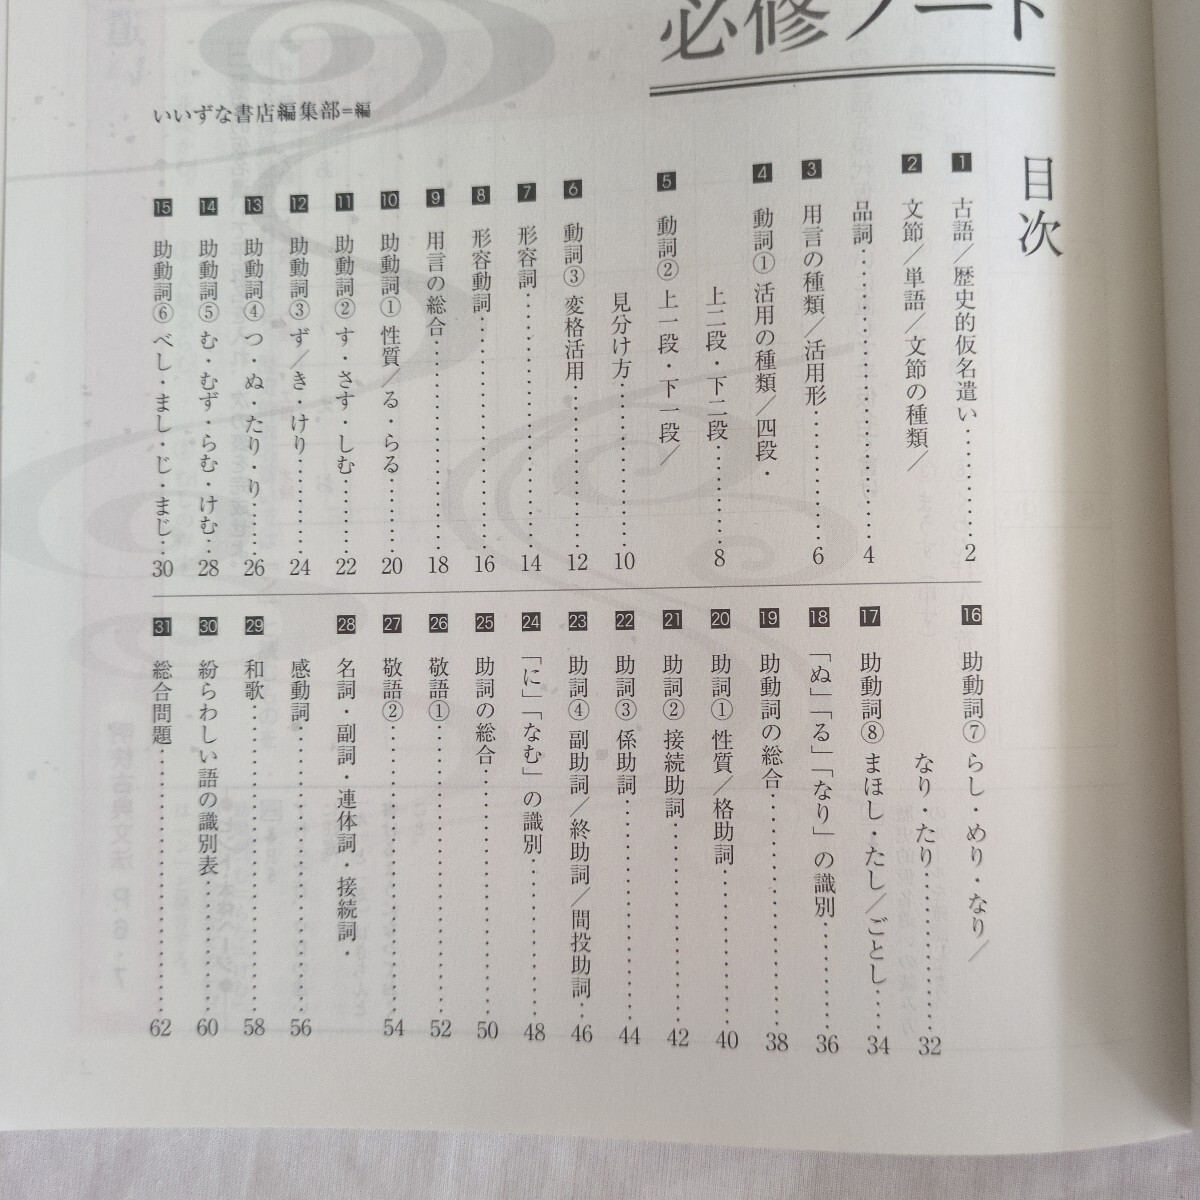 必修ノート
いいずな書店編集部=編
目次
1 古語／歴史的仮名遣い………2
2 文節／単語／文節の種類／
品詞………4
3 用言の種類／活用形………6
4 動詞① 活用の種類／四段・
上二段・下二段………8
5 動詞② 上一段・下一段／
見分け方………10
6 動詞③ 変格活用………12
7 形容詞………14
8 形容動詞………16
9 用言の総合………18
10 助動詞① 性質／る・らる………20
11 助動詞② す・さす・しむ………22
12 助動詞③ ず／き・けり………24
13 助動詞④ つ・ぬ・たり・り………26
14 助動詞⑤ む・むず・らむ・けむ…28
15 助動詞⑥ べし・まし・じ・まじ…30
16 助動詞⑦ らし・めり・なり／
なり・たり………32
17 助動詞⑧ まほし・たし／ごとし…34
18 「ぬ」「る」「なり」の識別………36
19 助動詞の総合………38
20 助詞① 性質／格助詞………40
21 助詞② 接続助詞………42
22 助詞③ 係助詞………44
23 助詞④ 副助詞／終助詞／間投助詞…46
24 「に」「なむ」の識別………48
25 助詞の総合………50
26 敬語①………52
27 敬語②………54
28 名詞・副詞・連体詞・接続詞・
感動詞………56
29 和歌………58
30 紛らわしい語の識別表………60
31 総合問題………62